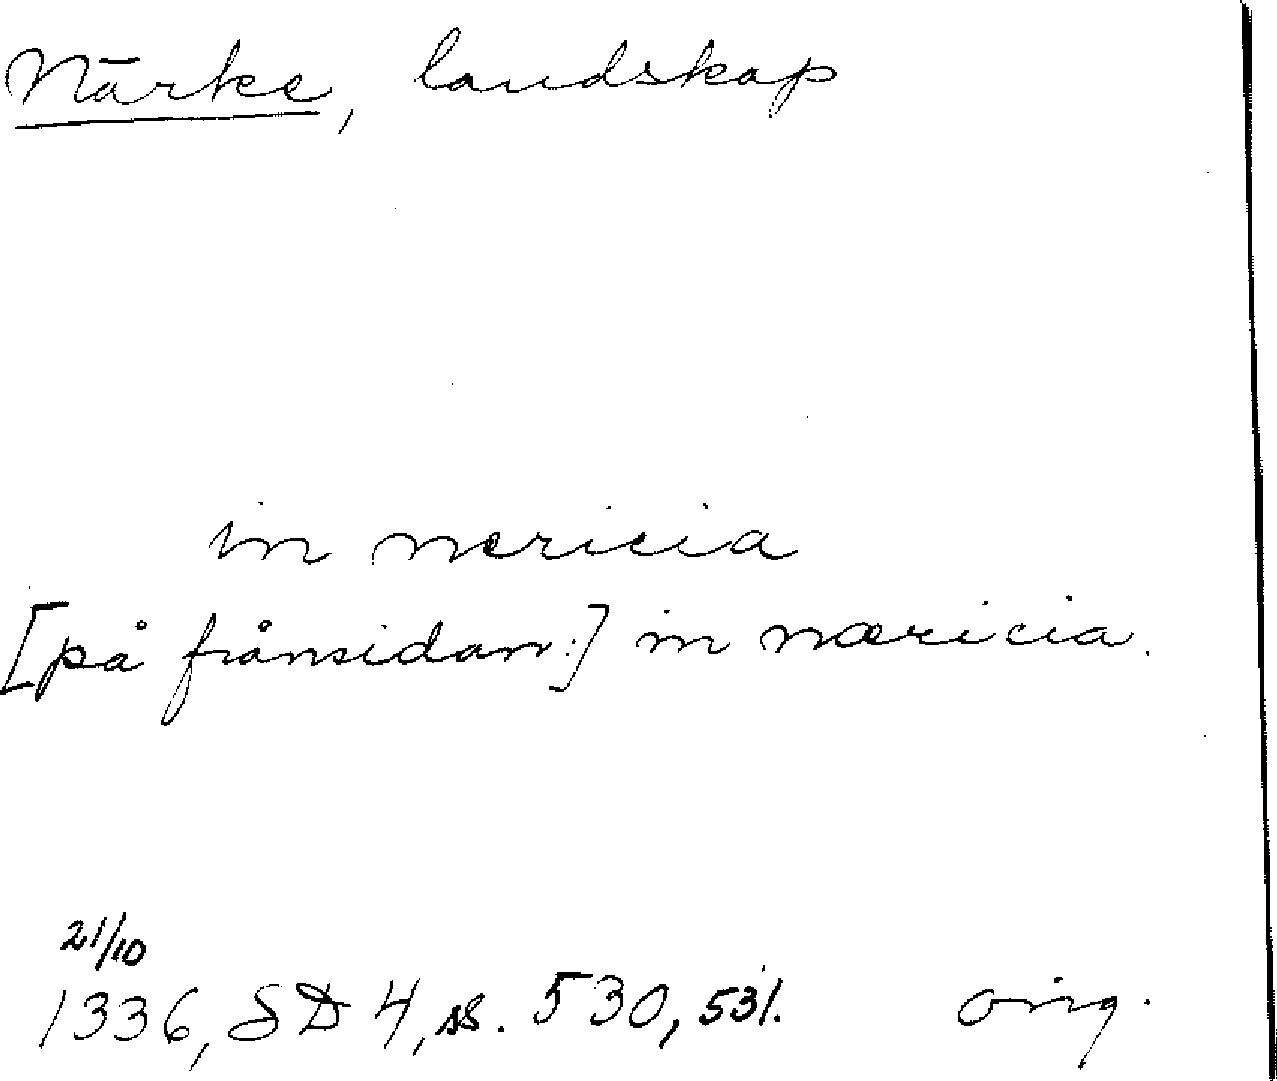 Närke, landskap
in nericia
[på frånsidan:] in næricia.
21/10
1336, SD 4, ss. 530, 531. orig.